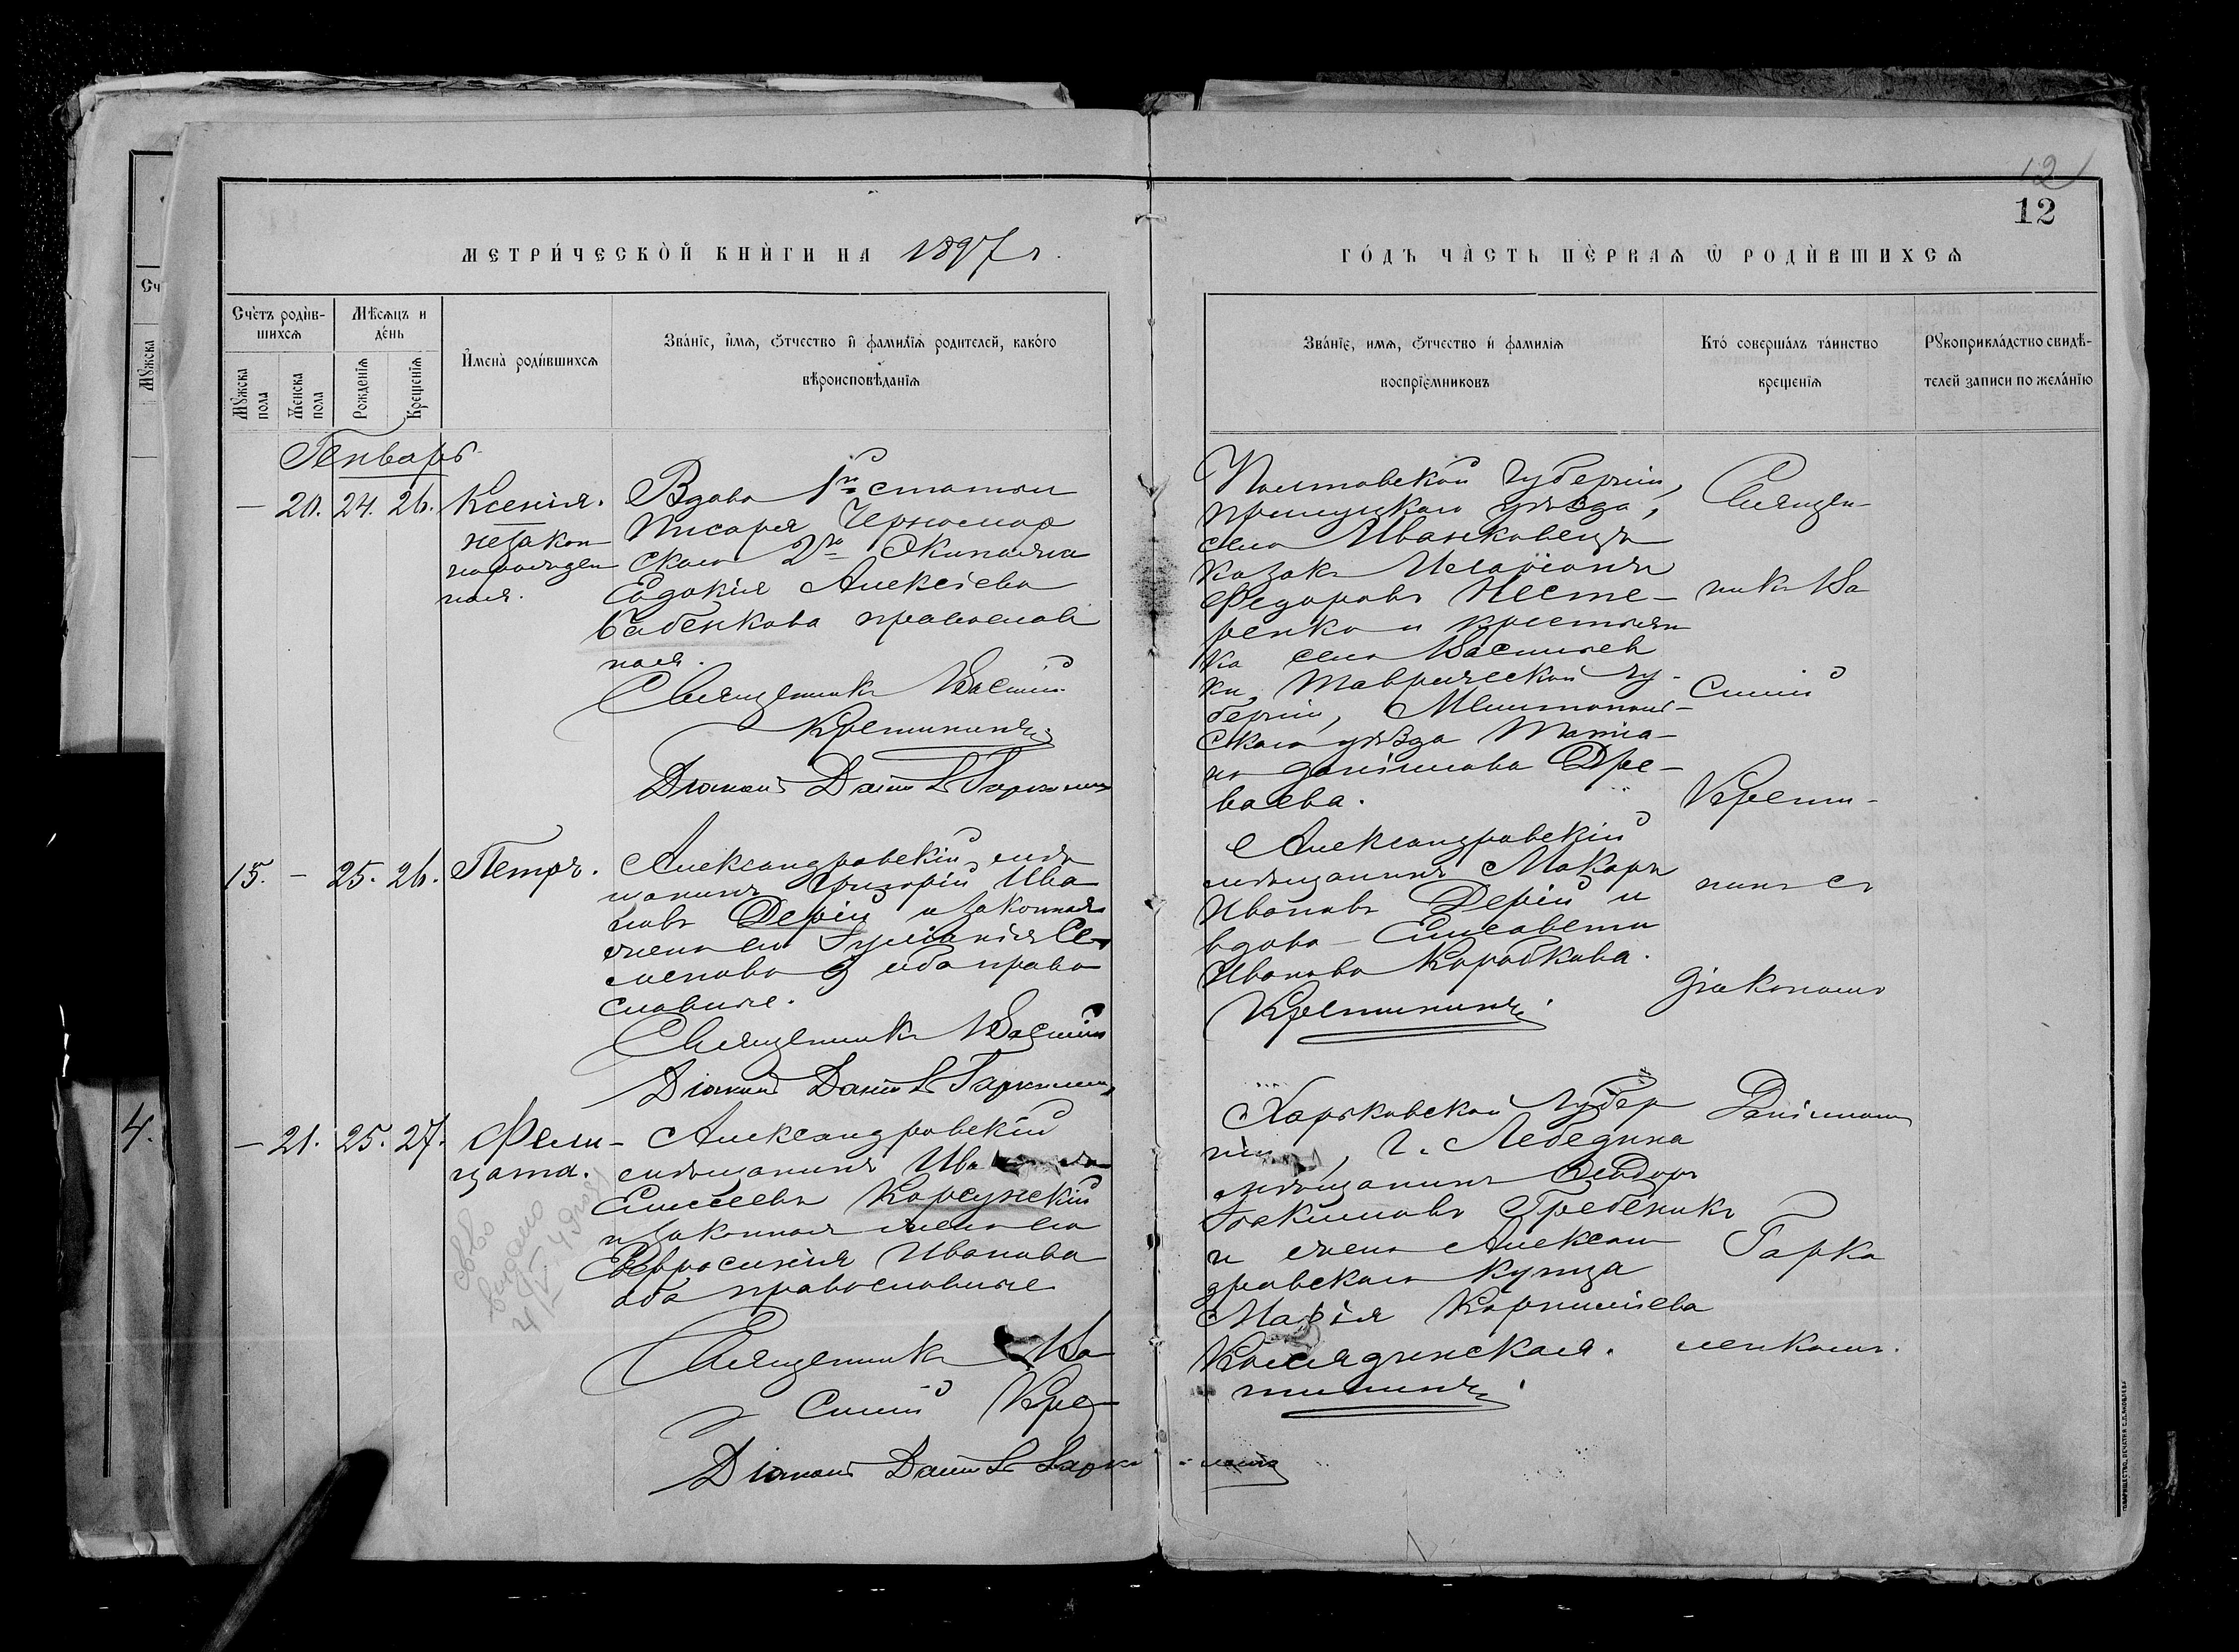 12
12
МЕТРИ́ЧЕСКОЙ КНИ́ГИ НА 1897 г.
ГО́ДЪ ЧА́СТЬ ПЕ́РВАѦ Ѿ РОДИ́ВШИХСѦ
Сче́тъ роди́в-
шихсѧ
Мѣ́сѧцъ и
де́нь
Мꙋжска
пола
Женска
пола
Рожденїѧ
Крещенїѧ
Имена̀ роди́вшихсѧ
Зва́нїе, и́мѧ, ѻ́тчество и҆ фами́лїѧ родителей, како́го
вѣроисповѣ́данїѧ
Зва́нїе, имѧ, ѻ́тчество и҆ фами́лїѧ
воспрїе́мниковъ
Кто́ соверша́лъ та́инство
креще́нїѧ
Рꙋкоприкла́дство свидѣ́-
телей записи по жела́нїю
Генварь
— 20. 24. 26. Ксенія.
незакон
норожден
ная.
Вдова 1й статьи
писаря Черномор
скаго 2го Экипажа
Евдокія Алексіева
Бабенкова православ
ная.
Священникъ Василій
Крестининъ
Діаконъ Даніилъ Гаркоменко
Полтавской губерніи,
прилуцкаго уѣзда,
села Иванковецъ
козакъ Иларіонъ
Федоровъ Несте-
ренко и крестьян
ка села Васильев
ки, Таврической гу-
берніи, Мелитополь-
скаго уѣзда Татіа-
на Даніилова Дре-
ваева.
Священ-
никъ Ва
силій
Крести-
нинъ съ
діакономъ
Даніиломъ
Гарко
менкомъ.
15. — 25. 26. Петръ.
Александровскій мѣ
щанинъ Григорій Ива
новъ Дерій и законная
жена его Іуліанія Се-
менова, оба право
славные.
Священникъ Василій
Діаконъ Даніилъ Гаркоменко
Александровскій
мѣщанинъ Макаръ
Ивановъ Дерій и
вдова Елисавета
Иванова Коробкова.
Крестининъ
4.
— 21. 25. 27. Фели-
цата.
Александровскій
мѣщанинъ
Елисеевъ Корсунскій
и законная жена его
Евфросинія Иванова
оба православные
св-во
выдано
Священникъ Ва
силій Кре
Діаконъ Даніилъ Гарко
менко
Харьковской губер
ніи, г. Лебедина
мѣщанинъ
Іоакимовъ Гребеникъ
и жена Алексан
дровскаго купца
Марія Корниліева
Колядинская.
стининъ